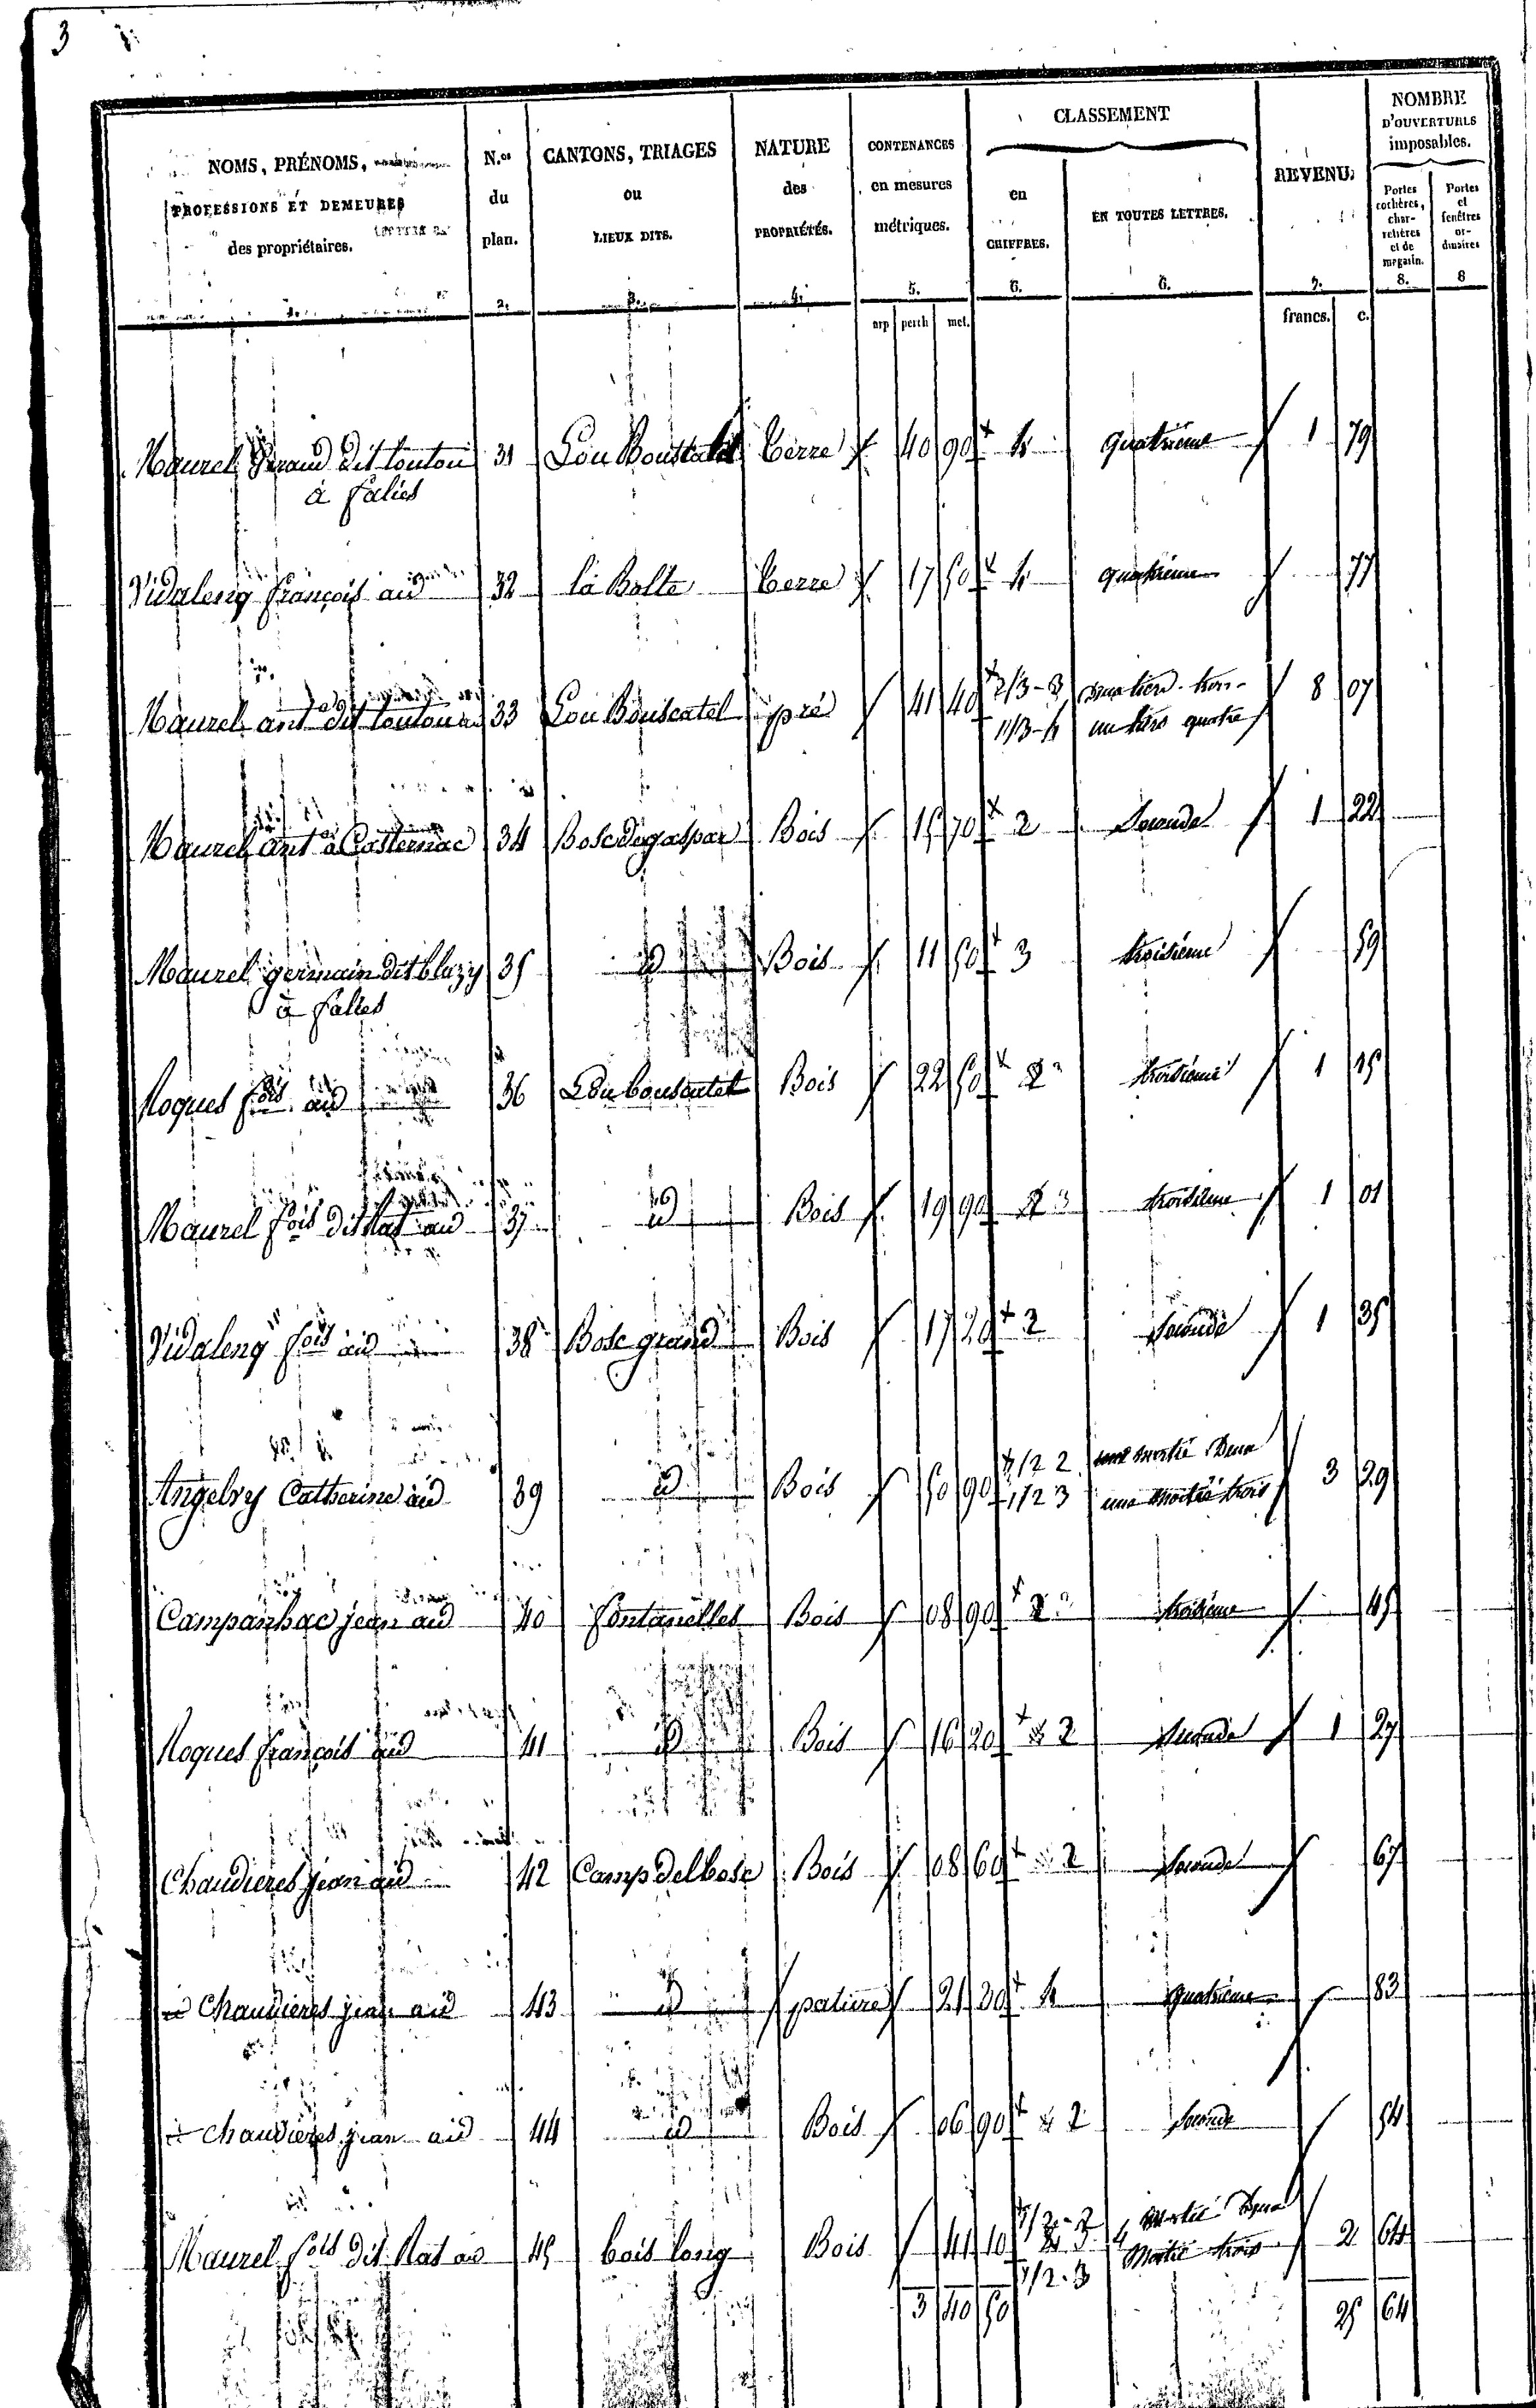 3
NOMS, PRÉNOMS,
PROFESSIONS ET DEMEURES
des propriétaires.
N.os du plan.
2.
CANTONS, TRIAGES
ou
LIEUX DITS.
3.
NATURE
des
PROPRIÉTÉS.
4.
CONTENANCES
en mesures
métriques.
5.
arp perch met.
CLASSEMENT
en
CHIFFRES.
6.
EN TOUTES LETTRES.
6.
REVENU.
7.
francs. c.
NOMBRE
D'OUVERTURES
imposables.
Portes cochères, charretières et de magasin.
8.
Portes et fenêtres ordinaires
8
Maurel Geraud dit touton 31 Lou Bouscatel terre 40 90 4 quatrième 1 79
à falies
Vidaleng françois aud 32 la Bolte terre 17 50 4 quatrième 77
Maurel ant dit toutou au 33 Lou Bouscatel pré 41 40 2/3-3 8 07
1/3-4 un tiers quatre
Maurel ant à Casternac 34 Bosc de gaspar Bois 15 70 2 Seconde 1 22
Maurel germain dit blazy 35 id Bois 11 50 3 troisième 59
à falies
Roques fois aud 36 Lou bouscatel Bois 22 50 troisième 1 15
Maurel fois dit Nas aud 37 id Bois 19 90 3 troisième 1 01
Vidaleng fois aud 38 Bosc grand Bois 17 20 2 Seconde 1 35
Angelvy Catherine aud 39 id Bois 50 90 1/2 2 une moitié Deux 3 29
1/2 3 une moitié trois
Campanhac jean aud 40 fontanelles Bois 08 90 troisième 45
Roques françois aud 41 id Bois 16 20 2 Seconde 1 27
Chaudieres jean aud 42 Camp Delbosc Bois 08 60 2 Seconde 67
id Chaudieres jean aud 43 id pature 21 30 4 quatrième 83
id Chaudieres jean aud 44 id Bois 06 90 2 Seconde 54
Maurel fois dit Nas au 45 bois long Bois 41 10 1/2-2 Moitié Deux 2 64
1/2-3 Moitié trois
3 40 50 25 64